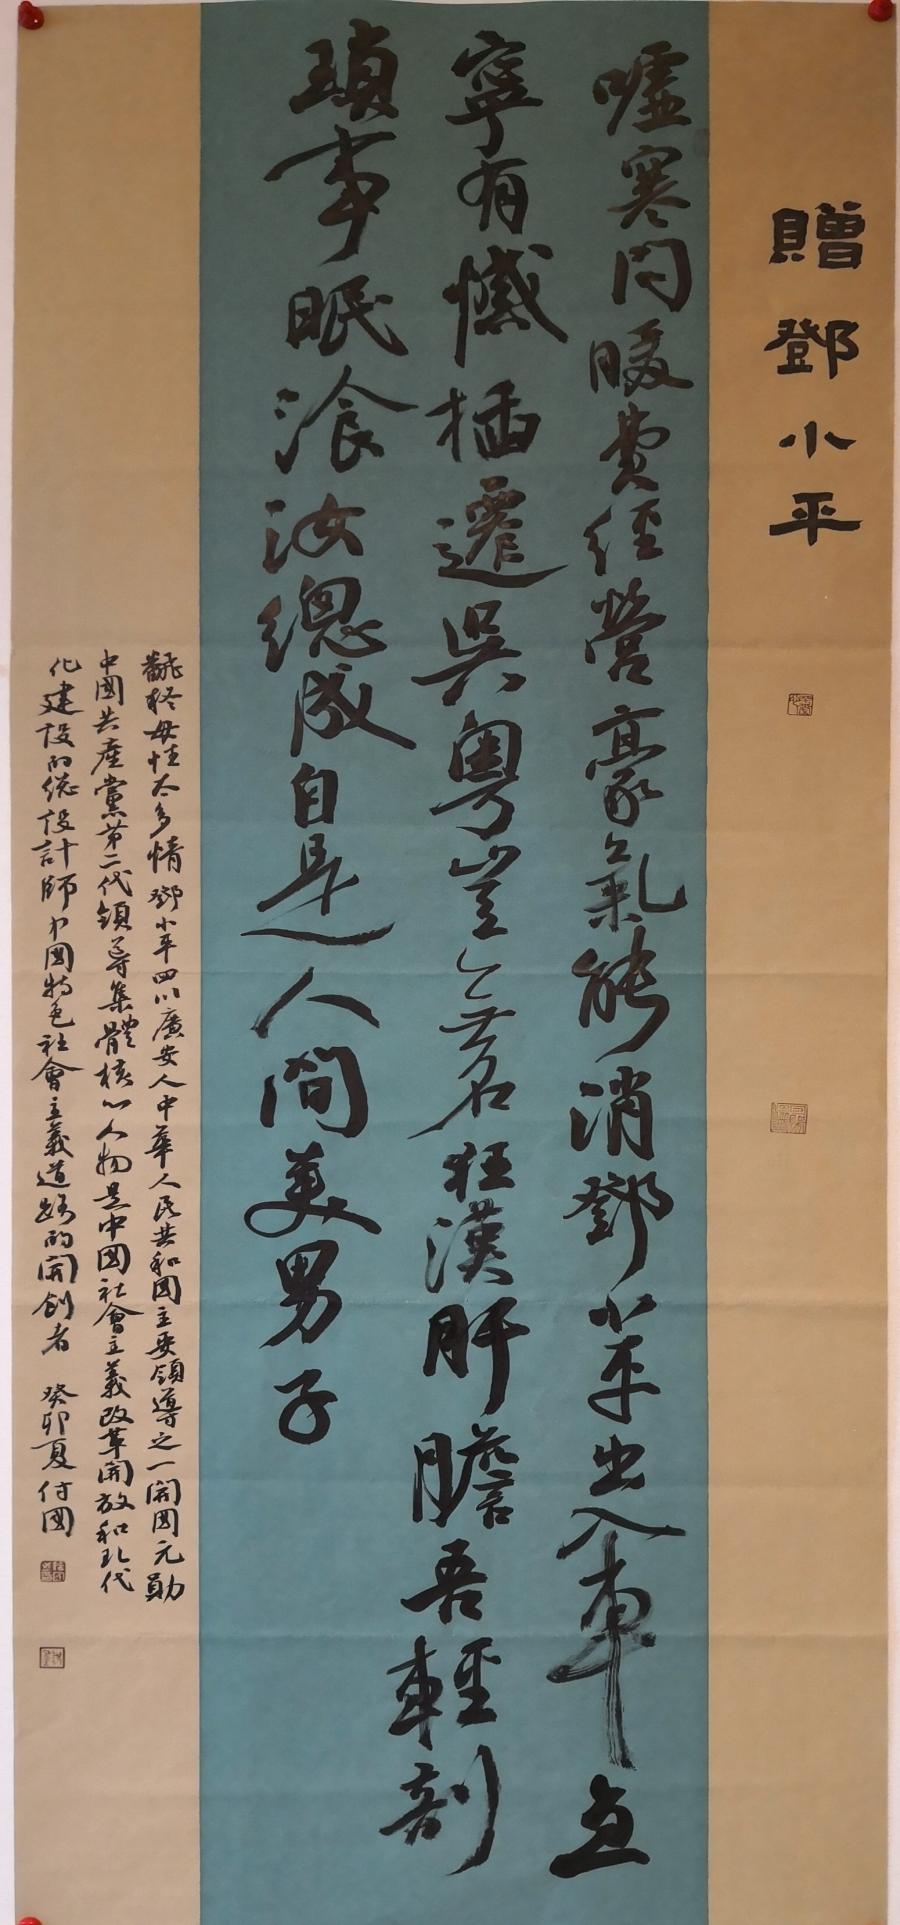 贈鄧小平
噓寒問暖費經營豪氣能消鄧小平出入車
寧有憾插遷吳粵豈無若狂漢肝膽吾輕剖
瑣事眠飡汝總成自是人間美男子
母性太多情鄧小平四川廣安人中華人民共和國主要領導之一開國元勛
中國共產黨第二代領導集體核心人物是中國社會主義改革開放和現代
化建設的總設計師中國特色社會主義道路的開創者 癸卯夏付國